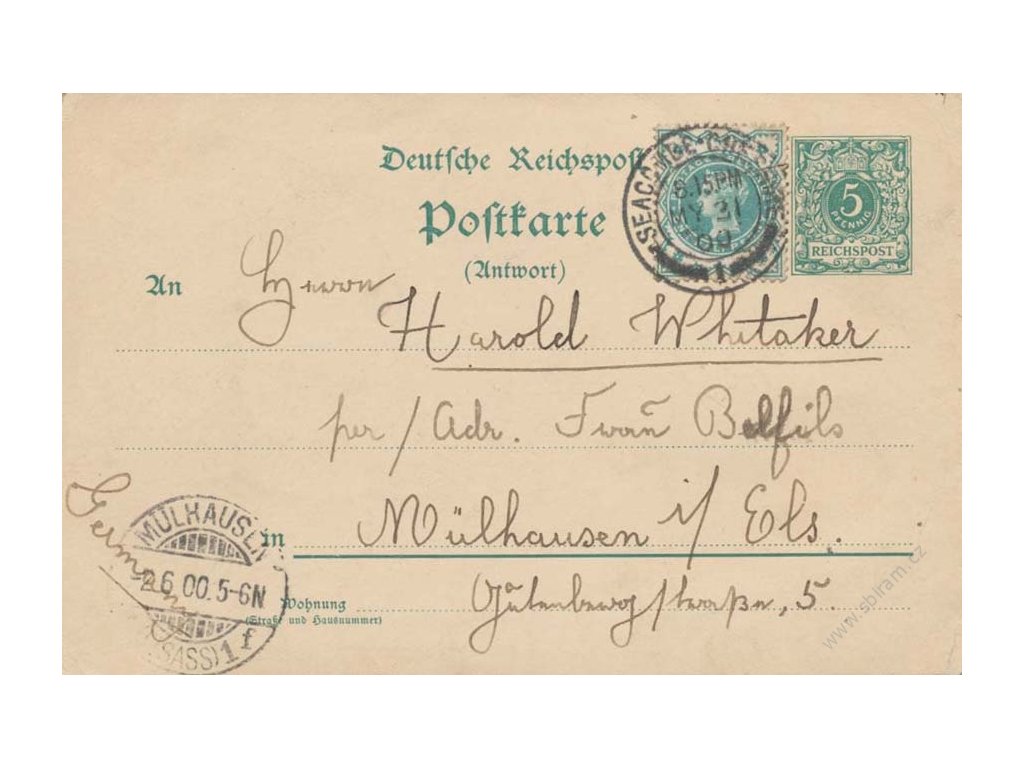 Deutsche Reichspost
Postkarte
(Antwort)
SEACOMBE
6.15PM
MY 31
00
1
5
PFENNIG
REICHSPOST
An
Herrn
Harold Whitaker
per/Adr. Frau Belfils
in
Mülhausen i/Els.
Germany
MÜLHAUSEN
2.6.00.5-6N
1 f
Wohnung
(Straße und Hausnummer)
Gutenbergstraße, 5.
www.sbiram.cz